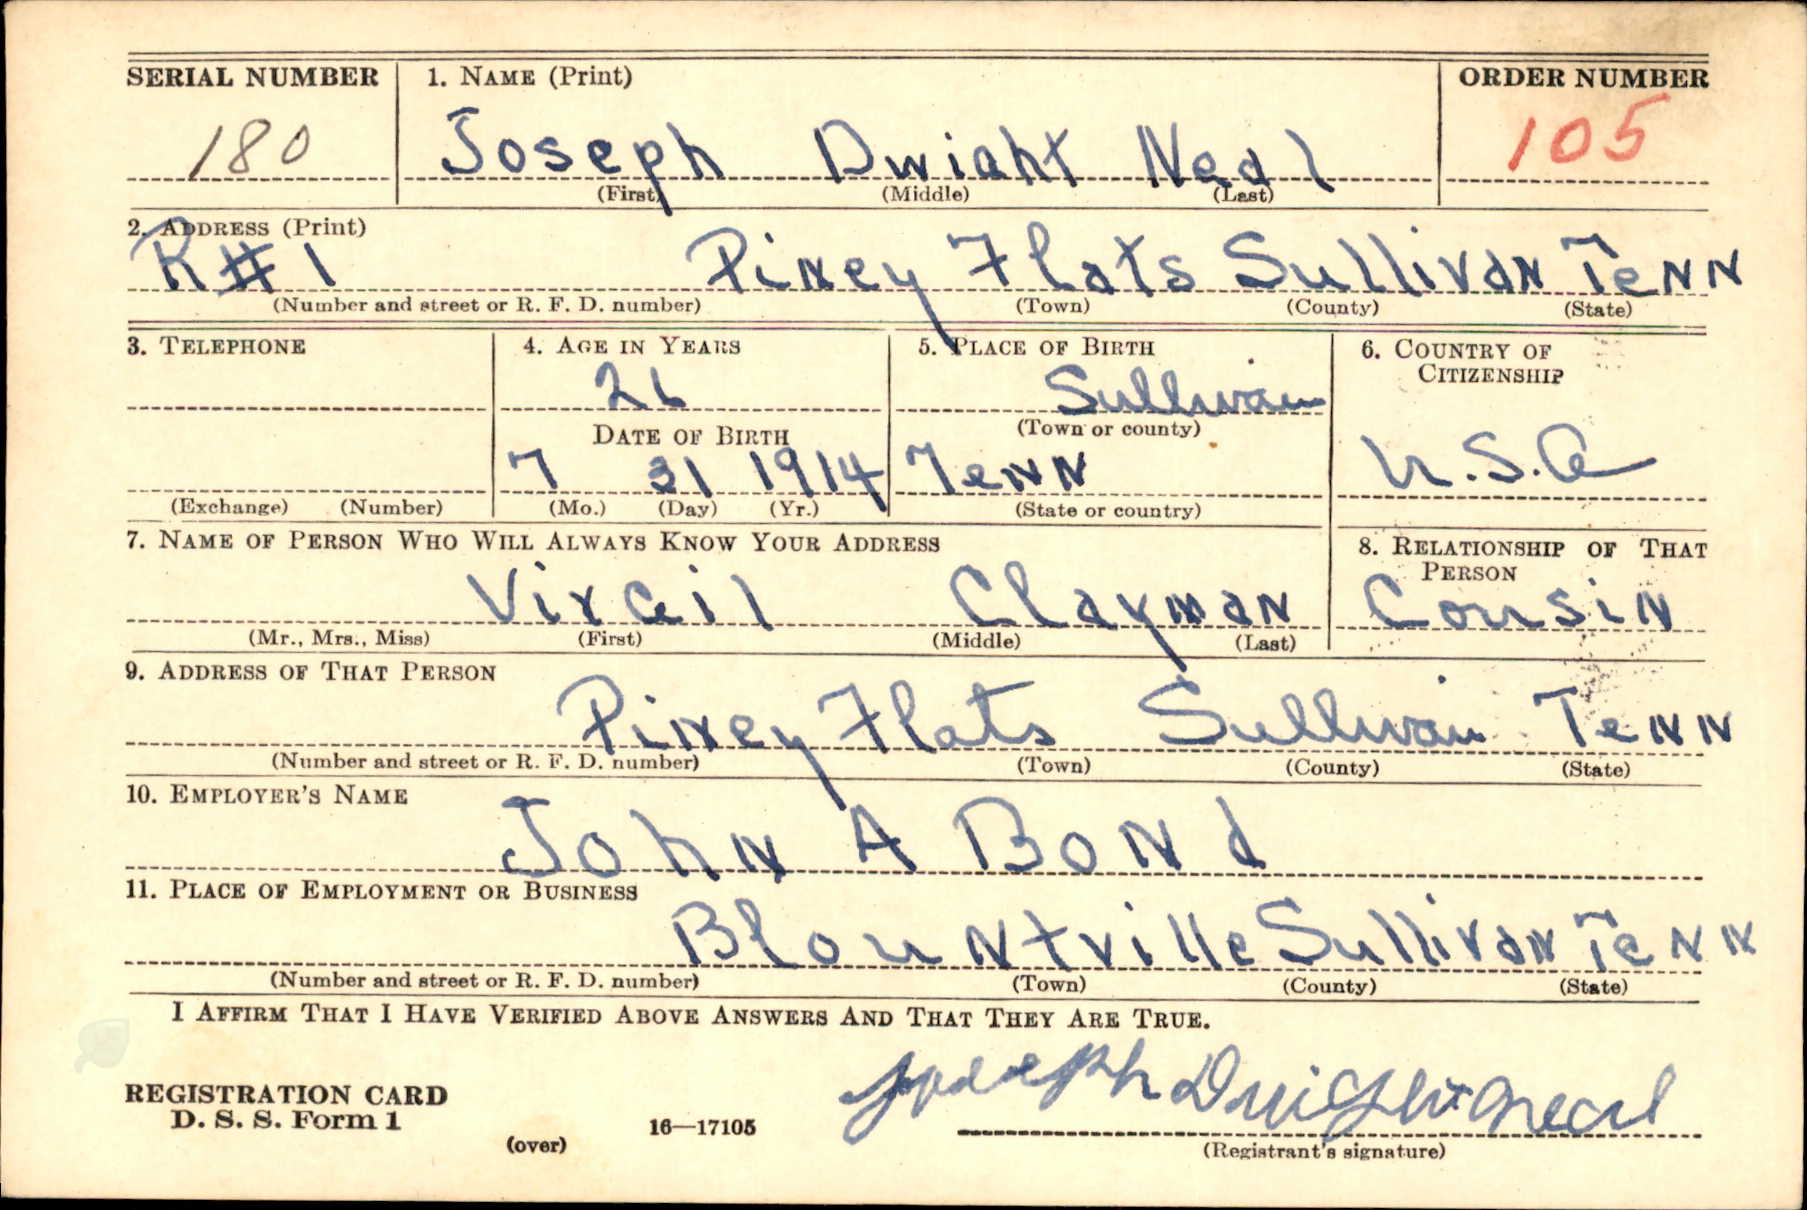 SERIAL NUMBER 1. NAME (Print) ORDER NUMBER
180 Joseph Dwight Neal 105
(First) (Middle) (Last)
2. ADDRESS (Print)
R#1 Piney Flats Sullivan Tenn
(Number and street or R. F. D. number) (Town) (County) (State)
3. TELEPHONE 4. AGE IN YEARS 5. PLACE OF BIRTH 6. COUNTRY OF CITIZENSHIP
26 Sullivan
DATE OF BIRTH (Town or county)
7 31 1914 Tenn U.S.A
(Exchange) (Number) (Mo.) (Day) (Yr.) (State or country)
7. NAME OF PERSON WHO WILL ALWAYS KNOW YOUR ADDRESS 8. RELATIONSHIP OF THAT PERSON
Virgil Clayman Cousin
(Mr., Mrs., Miss) (First) (Middle) (Last)
9. ADDRESS OF THAT PERSON
Piney Flats Sullivan Tenn
(Number and street or R. F. D. number) (Town) (County) (State)
10. EMPLOYER'S NAME
John A Bond
11. PLACE OF EMPLOYMENT OR BUSINESS
Blountville Sullivan Tenn
(Number and street or R. F. D. number) (Town) (County) (State)
I AFFIRM THAT I HAVE VERIFIED ABOVE ANSWERS AND THAT THEY ARE TRUE.
Joseph Dwight Neal
REGISTRATION CARD
D. S. S. Form 1 (over) 16—17105 (Registrant's signature)